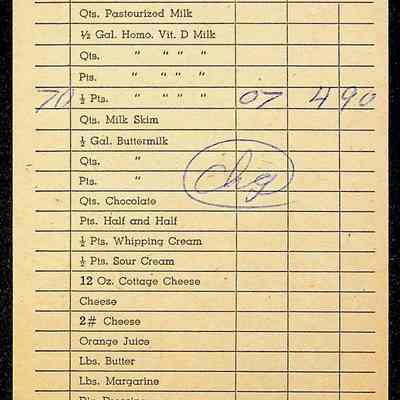 Qts. Pasteurized Milk
½ Gal. Homo. Vit. D Milk
Qts. " " " "
Pts. " " " "
70 ½ Pts. " " " " 07 4 90
Qts. Milk Skim
½ Gal. Buttermilk
Qts. "
Pts. "
Chg
Qts. Chocolate
Pts. Half and Half
½ Pts. Whipping Cream
½ Pts. Sour Cream
12 Oz. Cottage Cheese
Cheese
2# Cheese
Orange Juice
Lbs. Butter
Lbs. Margarine